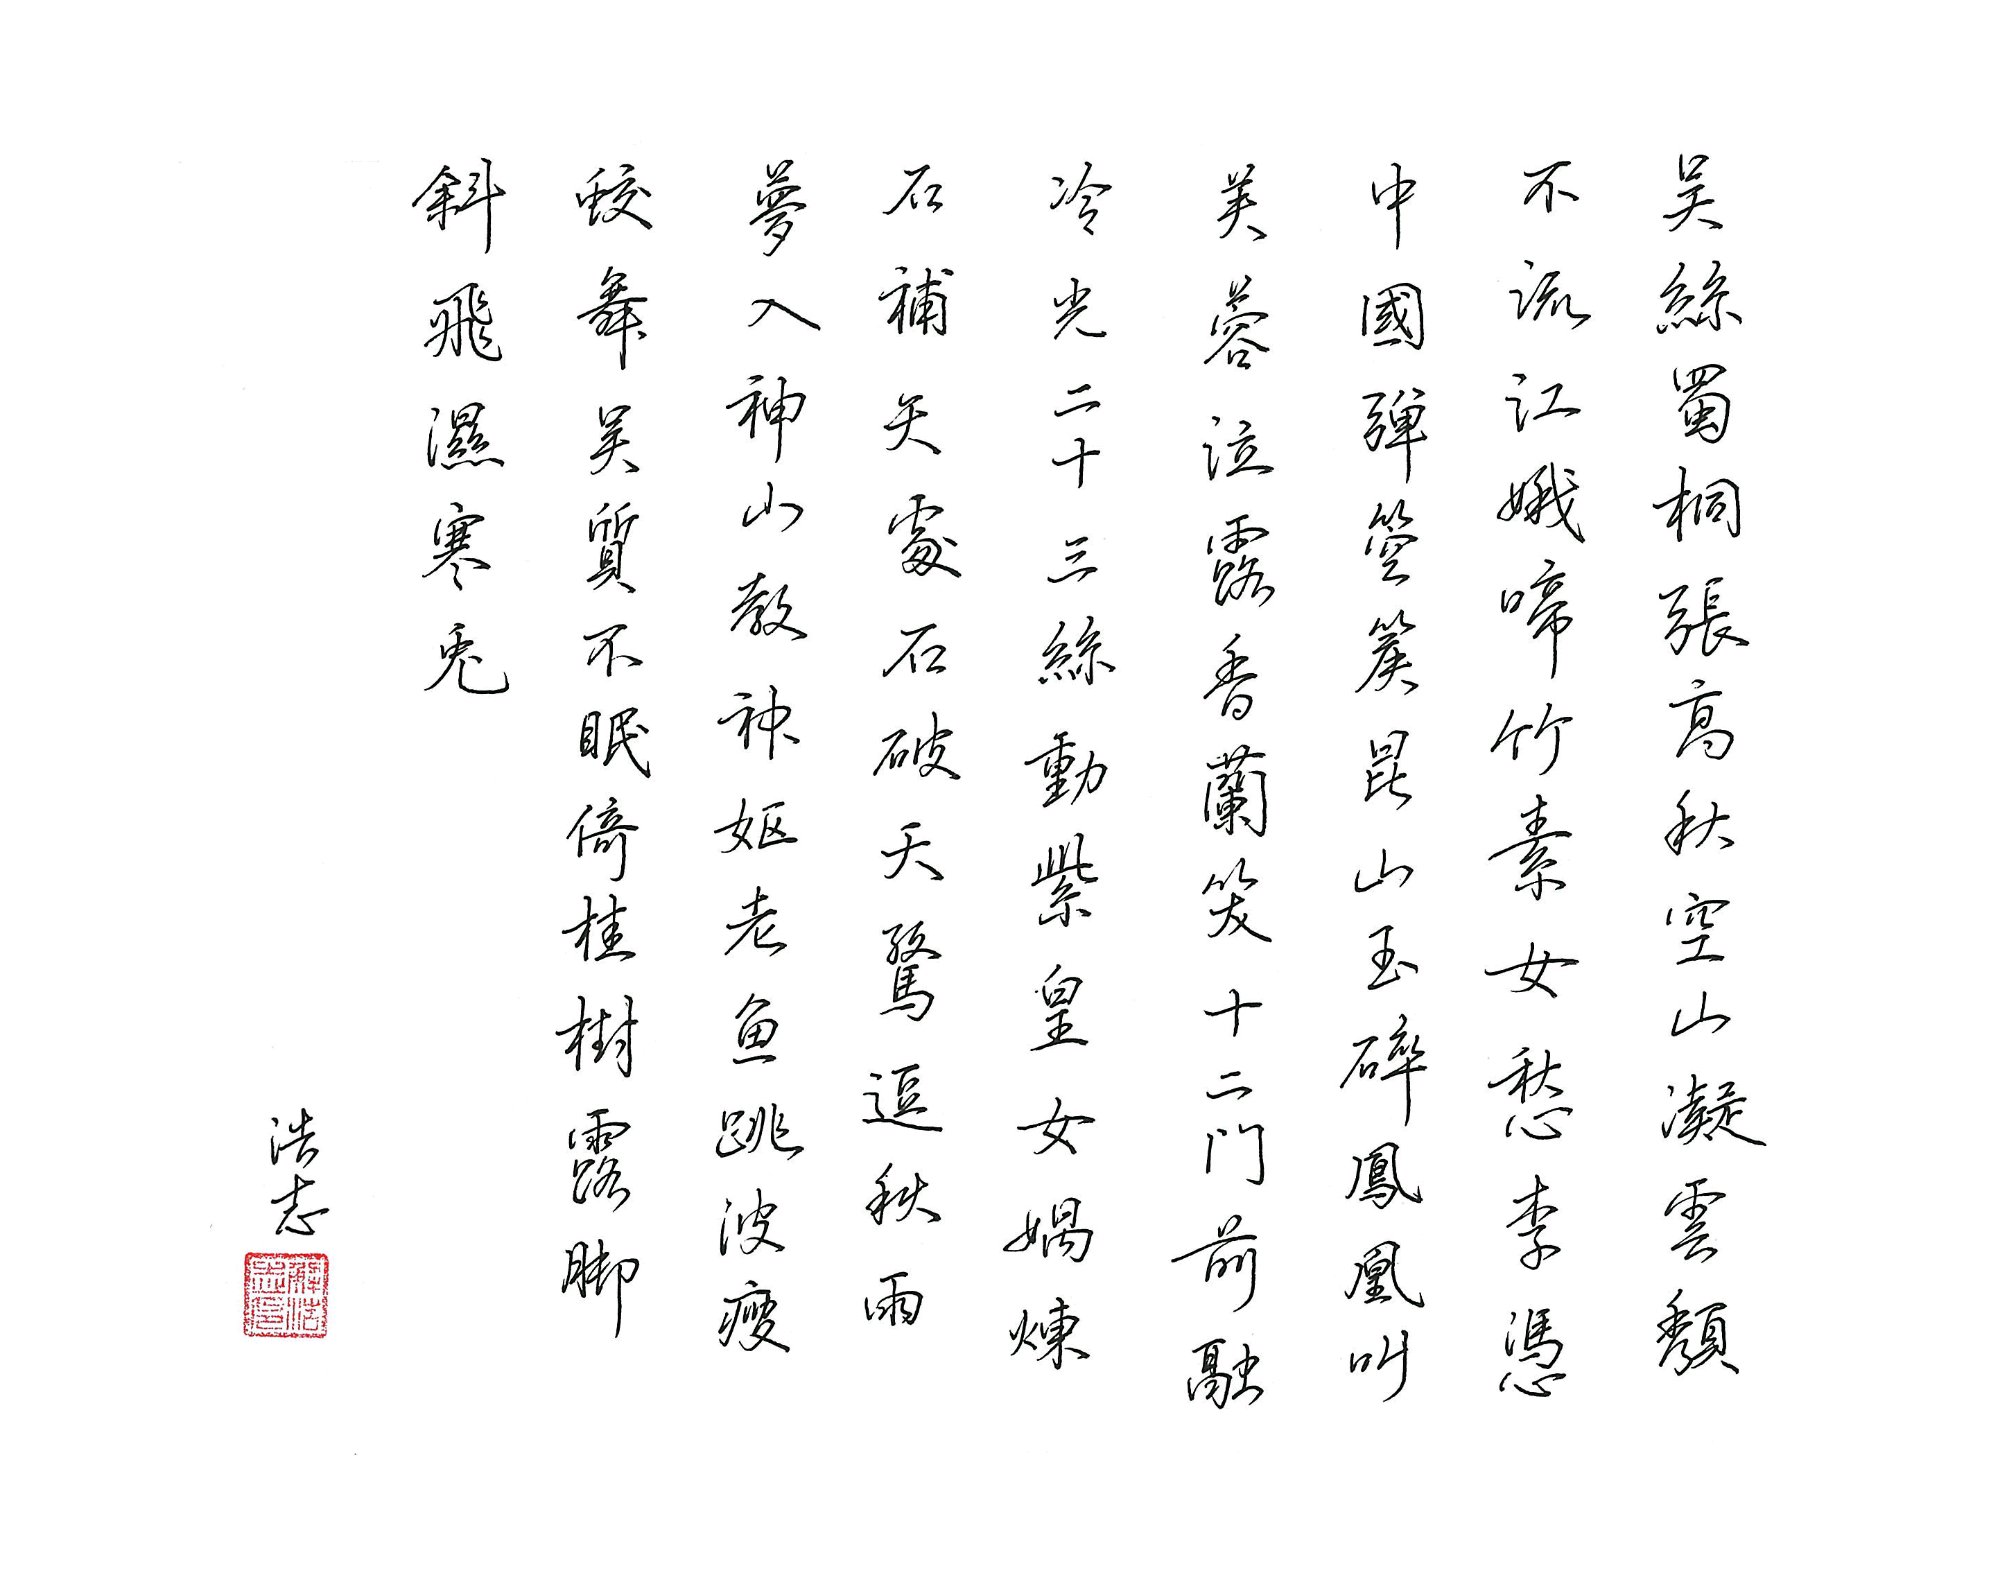 吴絲蜀桐張高秋空山凝雲頽
不流江娥啼竹素女愁李憑
中國彈箜篌昆山玉碎鳳凰叫
芙蓉泣露香蘭笑十二門前融
冷光二十三絲動紫皇女媧煉
石補天處石破天驚逗秋雨
夢入神山教神嫗老魚跳波瘦
蛟舞吴質不眠倚桂樹露脚
斜飛濕寒兔
浩志